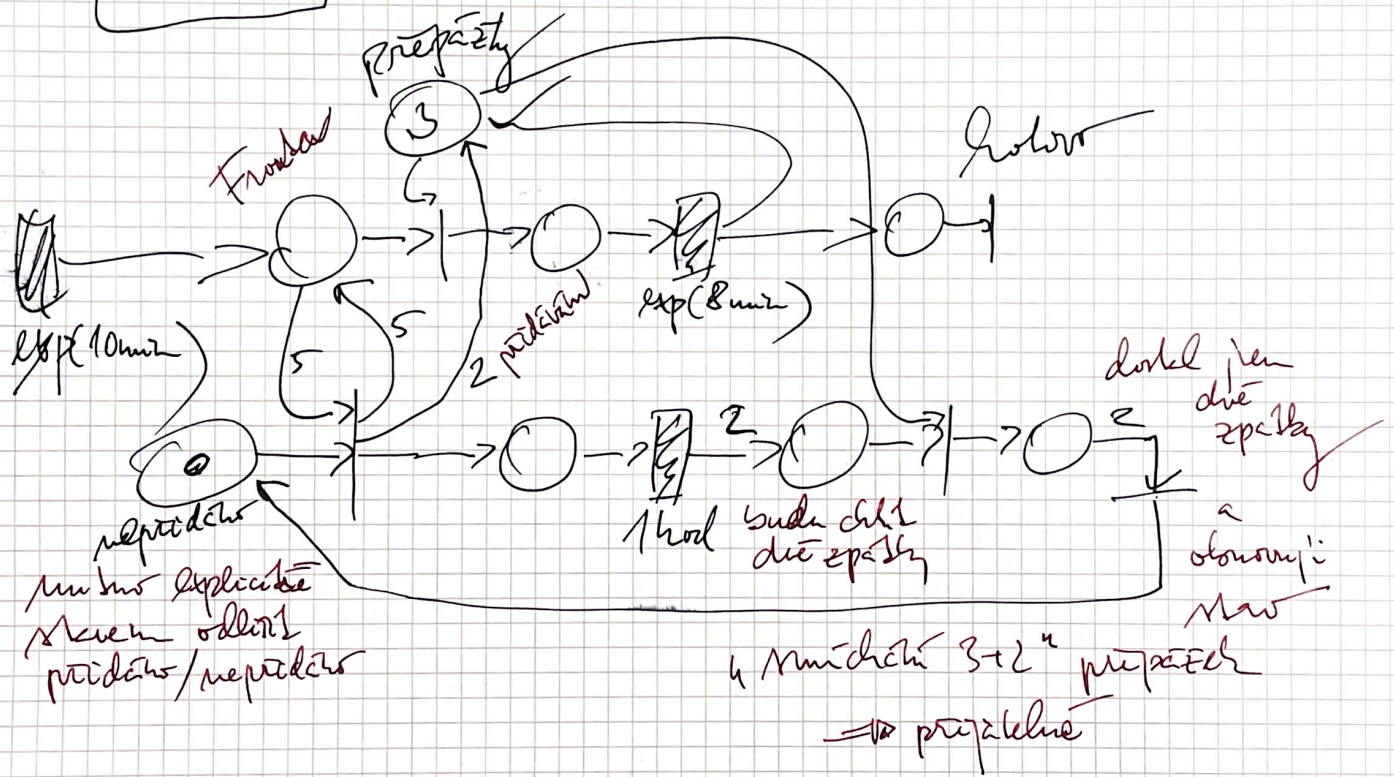 přepážky
3
Fronta
hotovo
exp(10min)
5
5
2 přidávám
exp(8min)
2
2
nepřidáno
nutno explicitně
stavem odlišit
přidáno/nepřidáno
1hod
budu chtít
dvě zpátky
dostal jsem
dvě
zpátky
a
obnovuji
stav
"smíchání 3+2" přepážek
⇒ přijatelné